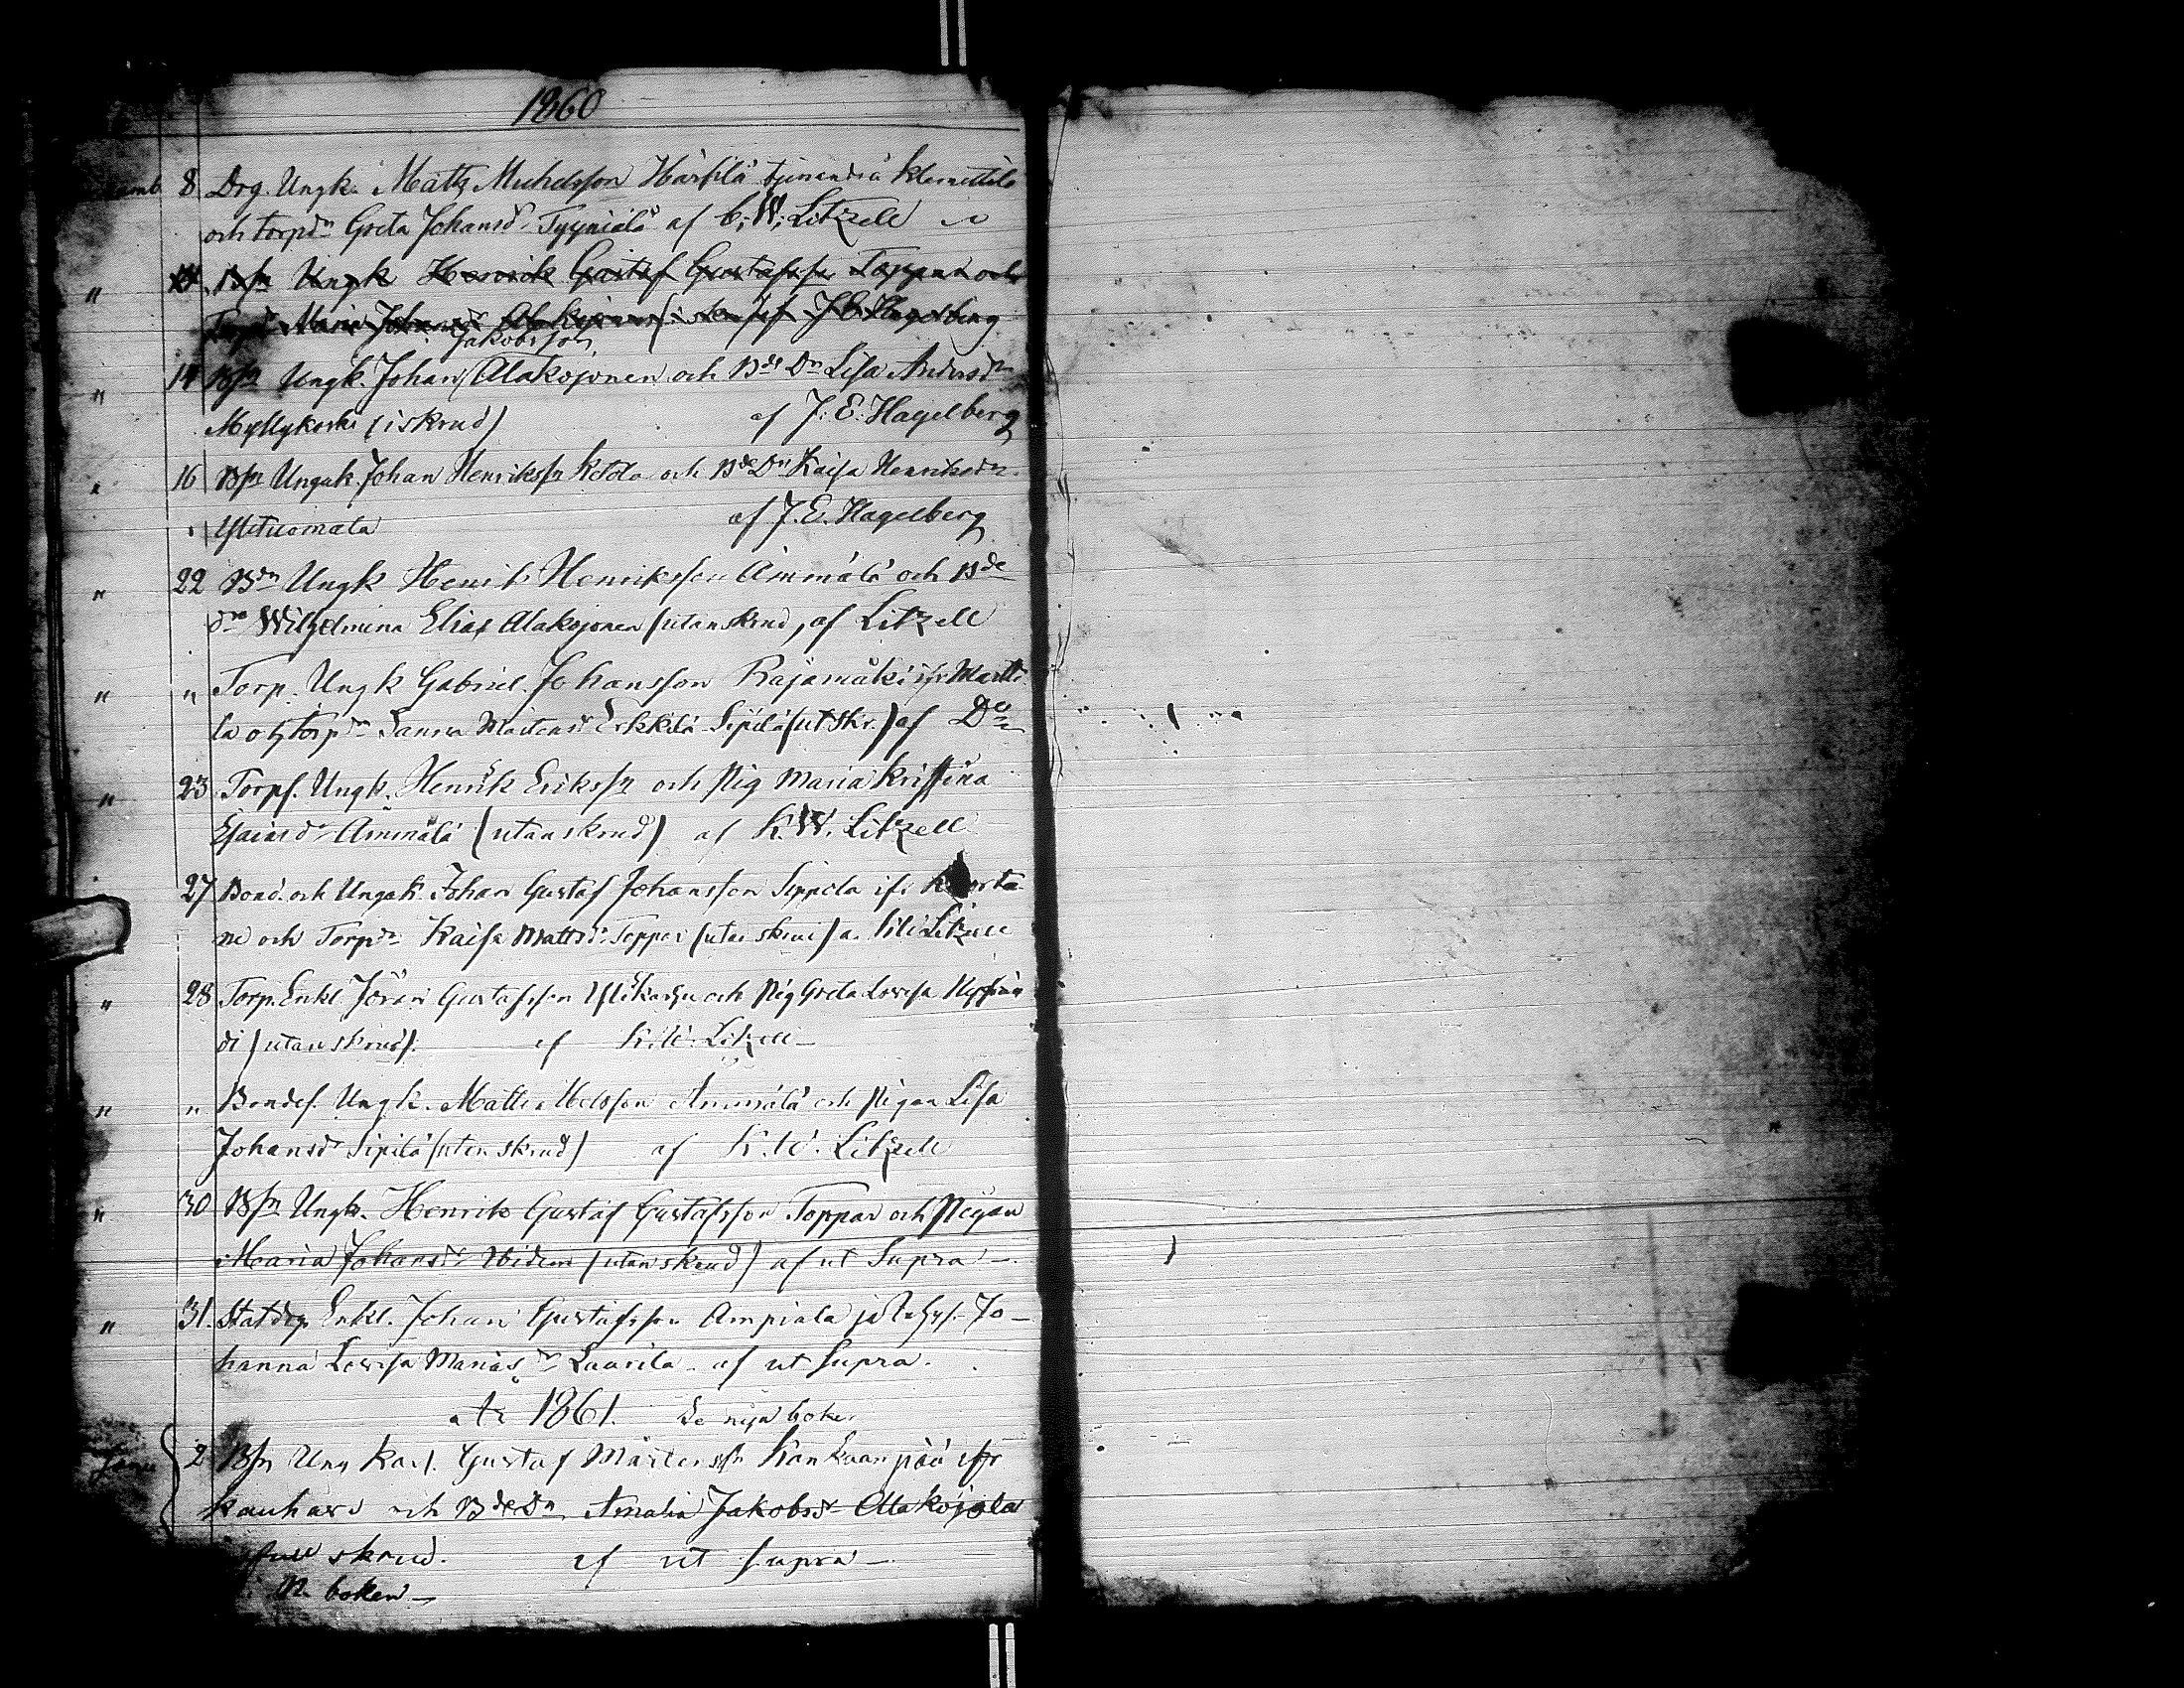 1860
8 Drg. Ungk. Matts Michelsson Härsilä tjenande å Klemettilä
och torpdn Greta Johansdr Tyyniälä af C. W. Litzell
" 14 Bsn Ungk Henrik Gustaf Gustafssn Toppar och
Torpdr Maria Johansdr Alakojonen af J E Hagelberg
Jakobsson
" 14 Bsn Ungk. Johan Alakojonen och Bde Dn Lisa Andersdr
Myllykoski (i skrud) af J. E. Hagelberg
" 16 Bsn Ungk Johan Henrikssn Kotola och Bde Dn Kaisa Henriksdr
Ylituomala af J. E. Hagelberg
" 22 Bdn Ungk Henrik Henriksson Ämmälä och Bde
dn Wilhelmina Elias Alakojonen (utan skrud) af Litzell
" " Torp. Ungk Gabriel Johansson Rajamäki ifr Martti-
la och torpdn Sanna Mårtensdr Erkkilä Sipilä (ut skr.) af Do
" 23 Torpf. Ungk. Henrik Erikssn och Pig Maria Kristina
Esaiasdr Ämmälä (utan skrud) af K. W. Litzell
27 Bond. och Ungk Johan Gustaf Johansson Seppälä ifr Kuorta-
ne och Torpdn Kaisa Mattsdr Toppar (utan skrud) a. Litzell
" 28 Torp. Enkl Jöran Gustafsson Ylikarhu och Pig Greta Lovisa
di (utan skrud). af K. W. Litzell
" " Bondes. Ungk. Matts Ämmälä och Pigan Lisa
Johansdr Sipilä (utan skrud) af K. W. Litzell
" 30 Bsn Ungk. Henrik Gustaf Gustafsson Toppar och Pigan
Maria Johansdr ibidem (utan skrud) af ut Supra
" 31. Statdrg. Enkl. Johan Gustafsson Ampiala Jo-
hanna Lovisa Mariasdr Laurila af ut Supra.
År 1861. Se nya boken
Janu 2 Bsn Ung Karl Gustaf Mårtenssn Kankaanpää ifr
Kauhava och Bde Dn Amalia Jakobsdr Alakojola
full skrud. af ut supra
N. boken